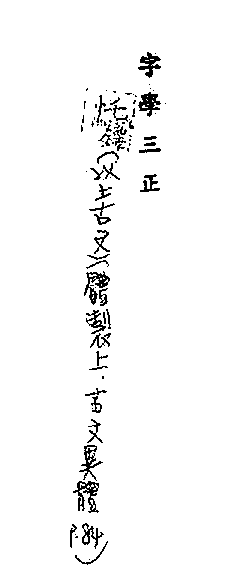 字學三正
(以上古文)體製上.古文異體